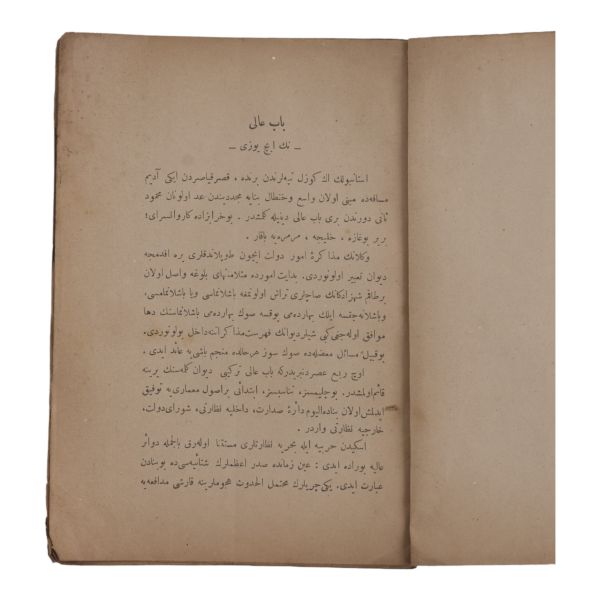 باب عالى
ـ نك ايچ يوزى ـ
استانبولك اك كوزل تپه‌لرندن برنده ، قصر قياصره‌دن ايكى آديم
مسافه‌ده مبنى اولان واسع وخنطال بنايه مجددينندن عد اولونان محمود
ثانى دورندن برى باب عالى دينيله كلمشدر . بوخرابزاده كاروانسراى ؛
برر بوغازه ، خليجه ، مرمره‌يه باقار .
وكلانك مذاكرهٔ امور دولت ايچون طوپلاندقلرى يره اقدمجه
ديوان تعبير اولونوردى . بدايت امورده مثلا منتهاى بلوغه واصل اولان
برطاقم شهزادكانك صاچلرى تراش اولونمغه باشلانماسى ويا باشلانمامسى ،
وباشلانه‌جقسه ايلك بهارده‌مى يوقسه صوك بهارده‌مى باشلانماسنك دها
موافق اوله‌جغى كبى شيلر ديوانك فهرست مذاكراتنه داخل بولونوردى .
بوقبيل مسائل معضله‌ده صوك سوز هر حالده منجم باشى‌يه عائد ايدى .
اوچ ربع عصردنبريدركه باب عالى تركيبى ديوان كلمه‌سنك يرينه
قائم اولمشدر . بوچليمسز ، تناسبسز ، ابتدائى براصول معمارى‌يه توفيق
ايديلمش اولان بناده اليوم دائرهٔ صدارت ، داخليه نظارتى ، شوراى دولت ،
خارجيه نظارتى واردر .
اسكيدن حربيه ايله بحريه نظارتلرى مستثنا اوله‌رق بالجمله دوائر
عاليه بوراده ايدى ؛ عين زمانده صدر اعظملرك شتائيه‌سى ده بوبنادن
عبارت ايدى . يكى‌چريلرك محتمل الحدوث هجوملرينه قارشى مدافعه‌يه